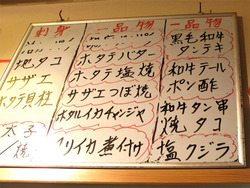 刺身
地タコ
サザエ
ホタテ貝柱
太子
一品物
ホタテバター
ホタテ塩焼
サザエつぼ焼
ホタルイカチャンジャ
イカ煮付け
一品物
黒毛和牛
タンテキ
和牛テール
ポン酢
和牛タン串
焼タコ
塩クジラ